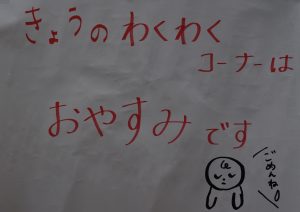 きょうのわくわく
コーナーは
おやすみです
ごめんね